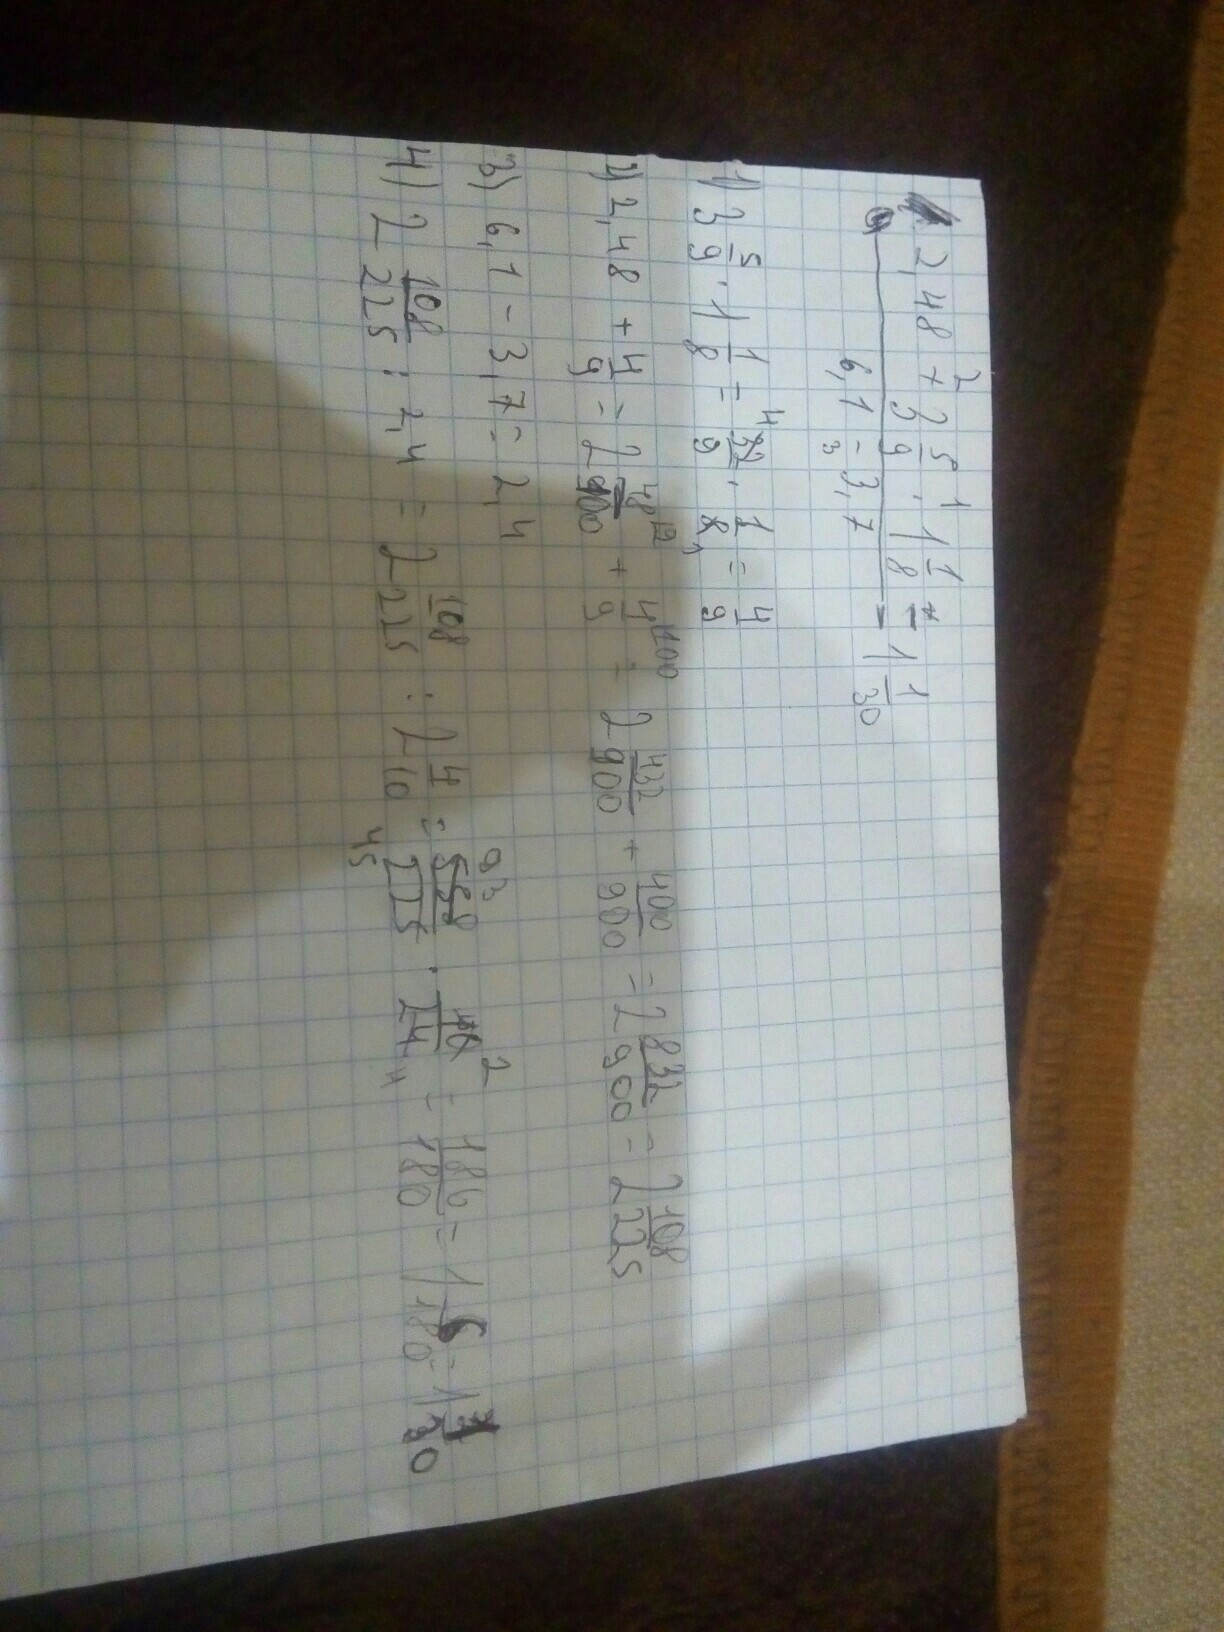 2,48 + 3 5/9 · 1 1/8
6,1 - 3,7 = 1 1/30
1) 3 5/9 · 1 1/8 = 32/9 · 1/8 = 4/9
2) 2,48 + 4/9 = 2 48/100 + 4/9 = 2 432/900 + 400/900 = 2 832/900 = 2 108/225
3) 6,1 - 3,7 = 2,4
4) 2 108/225 : 2,4 = 2 108/225 : 2 4/10 = 558/225 · 10/24 = 186/180 = 1 6/180 = 1 1/30